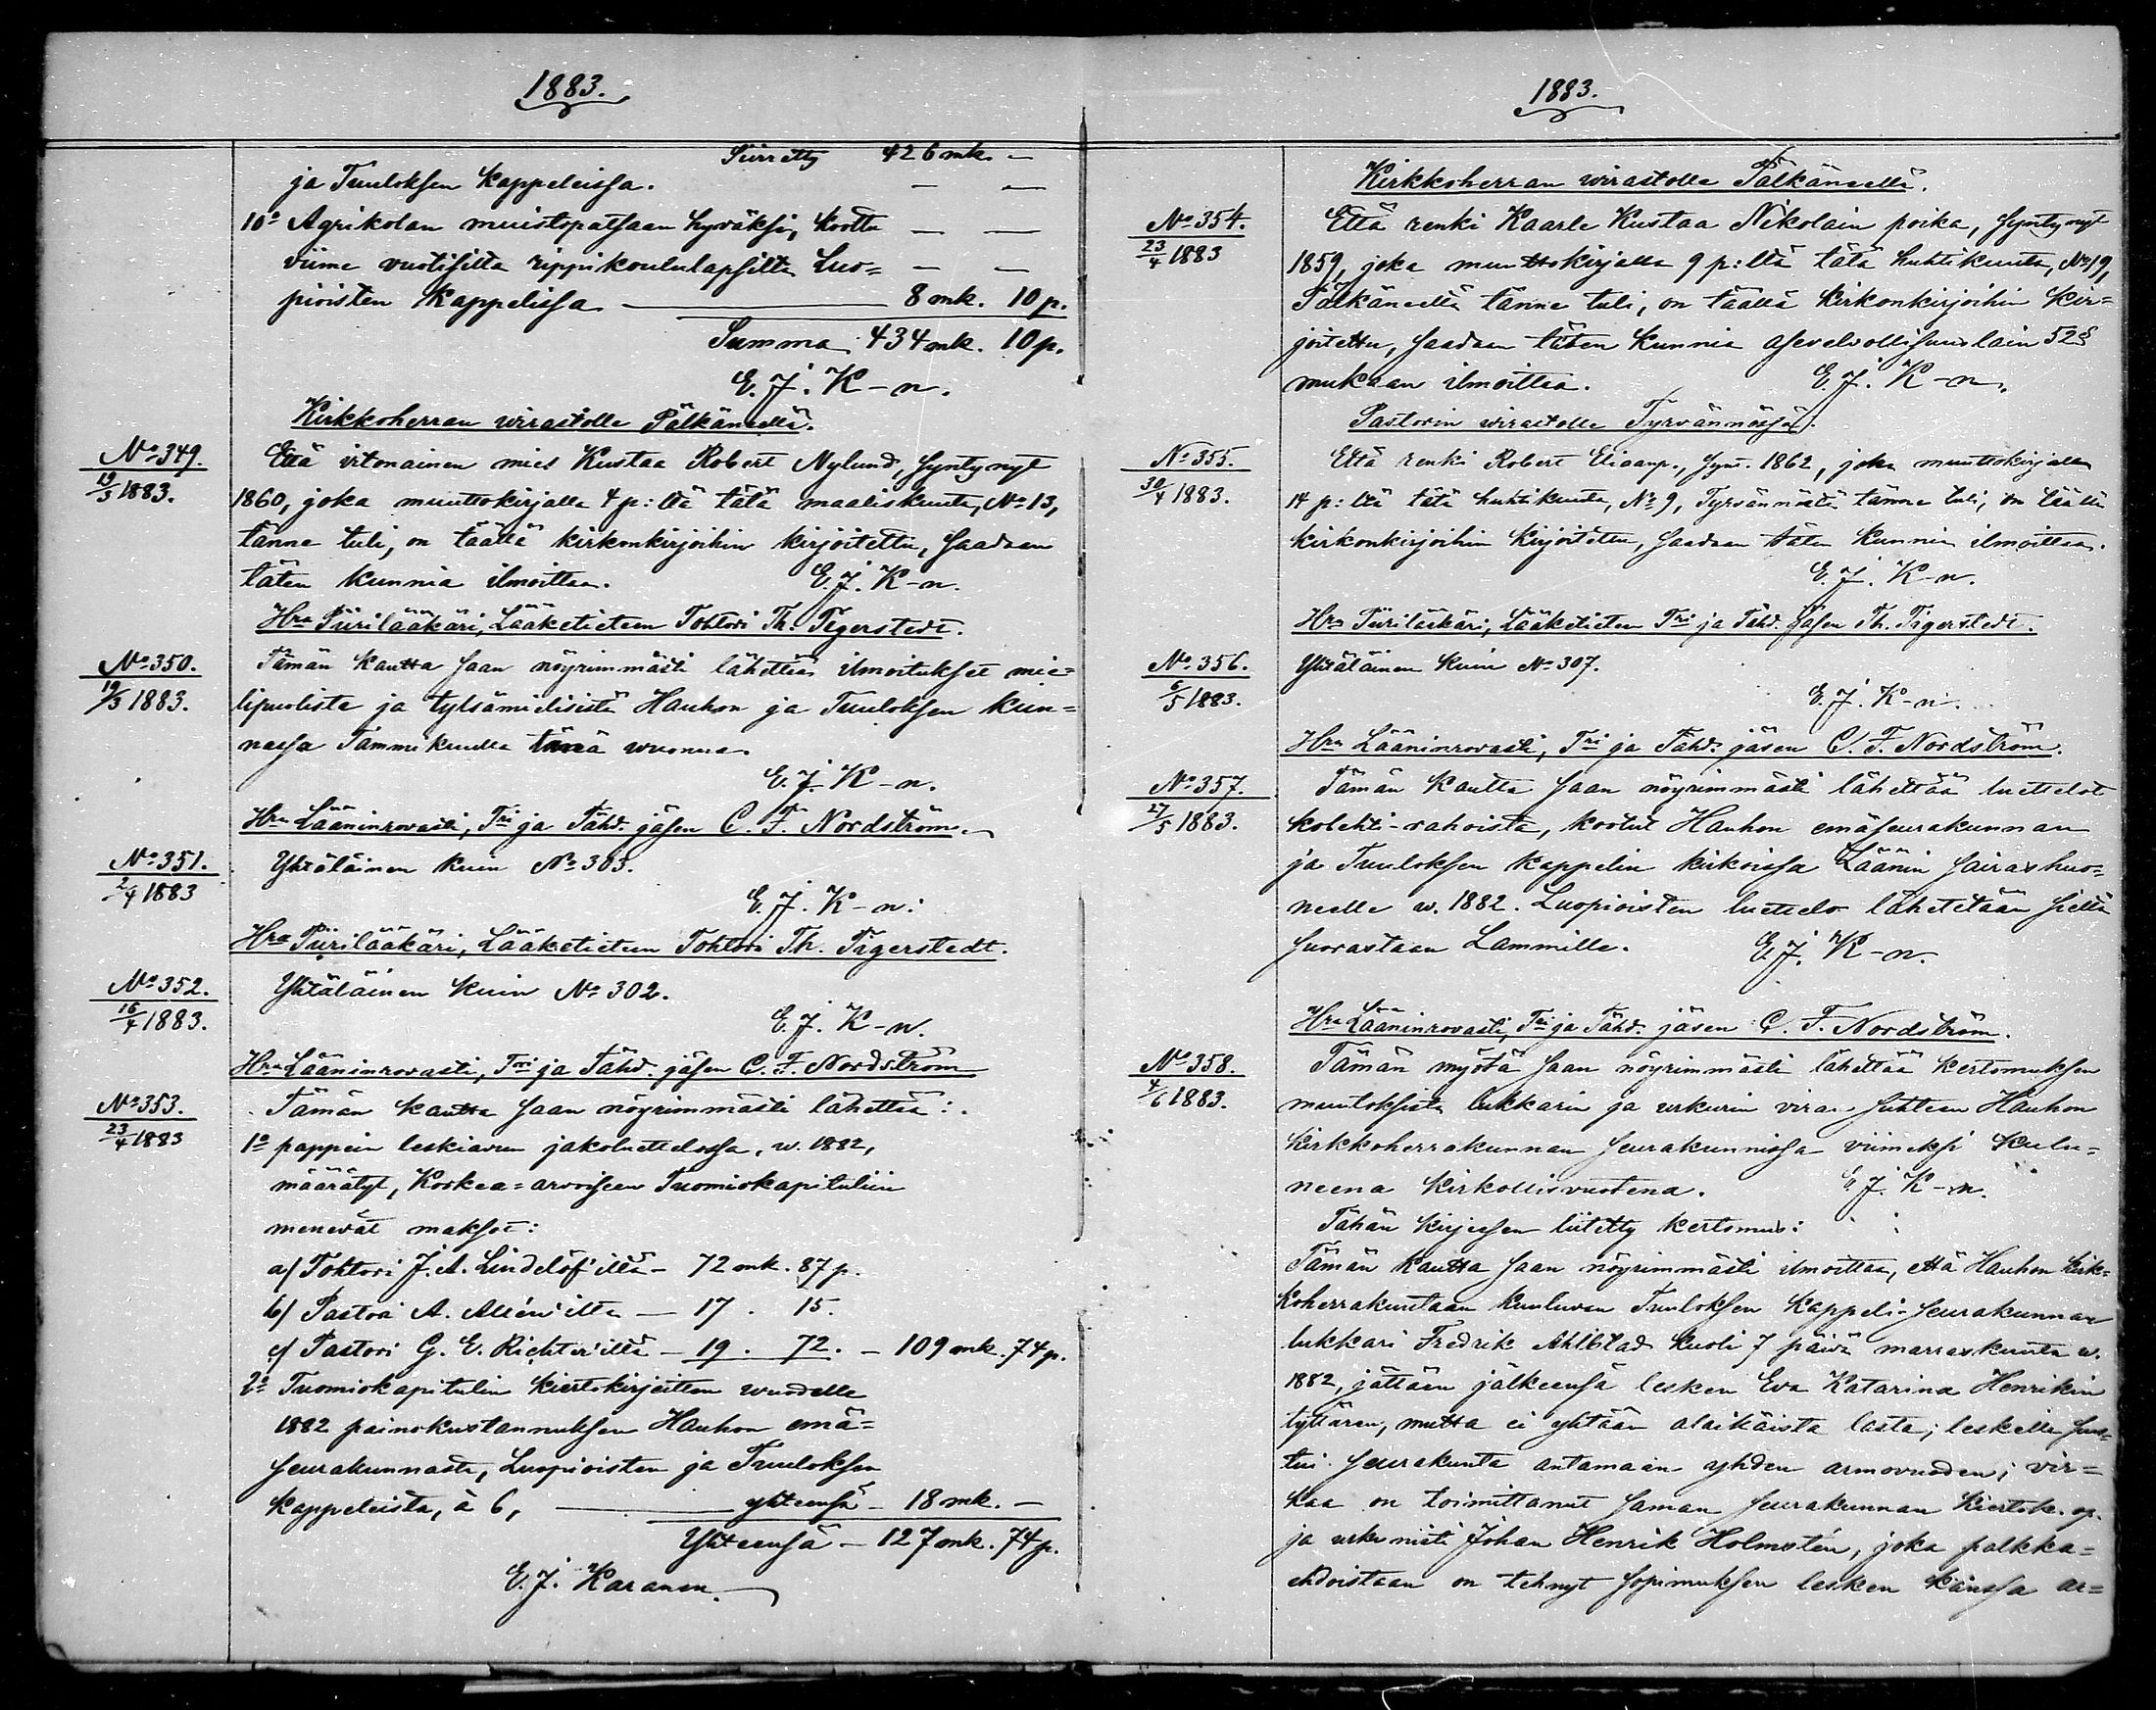 1883.
Siirretty 426 mk. —
ja Tuuloksen kappeleissa. — —
10o Agrikolan muistopatsaan hyväksi, koottu — —
viime vuotisilta rippikoululapsilta Luo= — —
pioisten kappelissa — 8 mk. 10 p.
Summa 434 mk. 10 p.
E. J. K-n.
Kirkkoherran wirastolle Pälkäneellä.
No 349.
19/3 1883.
Että irtonainen mies Kustaa Robert Nylund, syntynyt
1860, joka muuttokirjalla 4 p:ltä tätä maaliskuuta, No 13,
tänne tuli, on täällä kirkonkirjoihin kirjoitettu, saadaan
täten kunnia ilmoittaa. E. J. K-n.
Hra Piirilääkäri, Lääketieteen Tohtori Th. Tigerstedt.
No 350.
19/3 1883.
Tämän kautta saan nöyrimmästi lähettää ilmoitukset mie=
lipuolista ja tylsämielisistä Hauhon ja Tuuloksen kun=
nassa Tammikuulla tänä wuonna.
E. J. K-n.
Hra Lääninrovasti, Tri ja Tähd. jäsen C. F. Nordström.
No 351.
2/4 1883
Yhtäläinen kuin No 305.
E. J. K-n.
Hra Piirilääkäri, Lääketieteen Tohtori Th. Tigerstedt.
No 352.
16/4 1883.
Yhtäläinen kuin No 302.
E. J. K-n.
Hra Lääninrovasti, Tri ja Tähd. jäsen C. F. Nordström
No 353.
23/4 1883
Tämän kautta saan nöyrimmästi lähettää:
1o pappein leskiavun jakoluettelossa, w. 1882,
määrätyt, Korkea=arvoiseen Tuomiokapituliin
menevät maksot:
a/ Tohtori J. A. Lindelöf'iltä — 72 mk. 87 p.
b/ Pastori A. Allén'ilta — 17. 15.
c/ Pastori G. E. Richter'iltä — 19. 72. — 109 mk. 74 p.
2o Tuomiokapitulin kiertokirjeitten wuodelle
1882 painokustannuksen Hauhon emä=
seurakunnasta, Luopioisten ja Tuuloksen
kappeleista, à 6, — yhteensä — 18 mk. —
Yhteensä — 127 mk. 74 p.
E. J. Karanen.
1883.
Kirkkoherran wirastolle Pälkäneellä.
No 354.
23/4 1883
Että renki Kaarle Kustaa Nikolain poika, syntynyt
1859, joka muuttokirjalla 9 p:ltä tätä huhtikuuta, No 19,
Pälkäneeltä tänne tuli, on täällä kirkonkirjoihin kir=
joitettu, saadaan täten kunnia asevelvollisuuslain 52 §
mukaan ilmoittaa. E. J. K-n.
Pastorin wirastolle Tyrvännössä.
No 355.
30/4 1883.
Että renki Robert Eliaanp., synt. 1862, joka muuttokirjalla
14 p:ltä tätä huhtikuuta, No 9, Tyrvännöstä tänne tuli, on täällä
kirkonkirjoihin kirjoitettu, saadaan täten kunnia ilmoittaa.
E. J. K-n.
Hra Piirilääkäri, Lääketieteen Tri ja Tähd. jäsen Th. Tigerstedt.
No 356.
6/5 1883.
Yhtäläinen kuin No 307.
E. J. K-n.
Hra Lääninrovasti, Tri ja Tähd. jäsen C. F. Nordström.
No 357.
27/5 1883.
Tämän kautta saan nöyrimmästi lähettää luettelot
kolehti-rahoista, kootut Hauhon emäseurakunnan
ja Tuuloksen kappelin kirkoissa Läänin sairashuo=
neelle w. 1882. Luopioisten luettelo lähetetään sieltä
suorastaan Lammille. E. J. K-n.
Hra Lääninrovasti, Tri ja Tähd. jäsen C. F. Nordström.
No 358.
4/6 1883.
Tämän myötä saan nöyrimmästi lähettää kertomuksen
muutoksista lukkarin ja urkurin viran suhteen Hauhon
kirkkoherrakunnan seurakunnissa viimeksi kulu=
neena kirkollisvuotena. E. J. K-n.
Tähän kirjeesen liitetty kertomus:
Tämän kautta saan nöyrimmästi ilmoittaa, että Hauhon kirk=
koherrakuntaan kuuluvan Tuuloksen kappeli-seurakunnan
lukkari Fredrik Ahlblad kuoli 7 päivä marraskuuta w.
1882, jättäen jälkeensä lesken Eva Katarina Henrikin
tyttären, mutta ei yhtään alaikäistä lasta; leskelle suos=
tui seurakunta antamaan yhden armovuoden; vir=
kaa on toimittanut saman seurakunnan kiertok. op.
ja urkuristi Johan Henrik Holmstén, joka palkka=
ehdoistaan on tehnyt sopimuksen lesken kanssa ar=